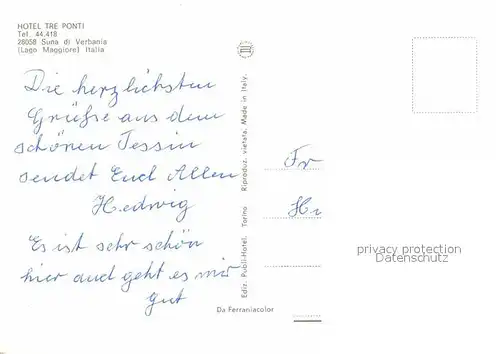 HOTEL TRE PONTI
Tel. 44.418
28058 Suna di Verbania
(Lago Maggiore) Italia
Die herzlichsten
Grüße aus dem
schönen Tessin
sendet Euch Allen
Hedwig
Es ist sehr schön
hier und geht es mir
gut
Ediz. Publi-Hotel. Torino Riproduz. vietata. Made in Italy.
Da Ferraniacolor
Fr
Hi
privacy protection
Datenschutz